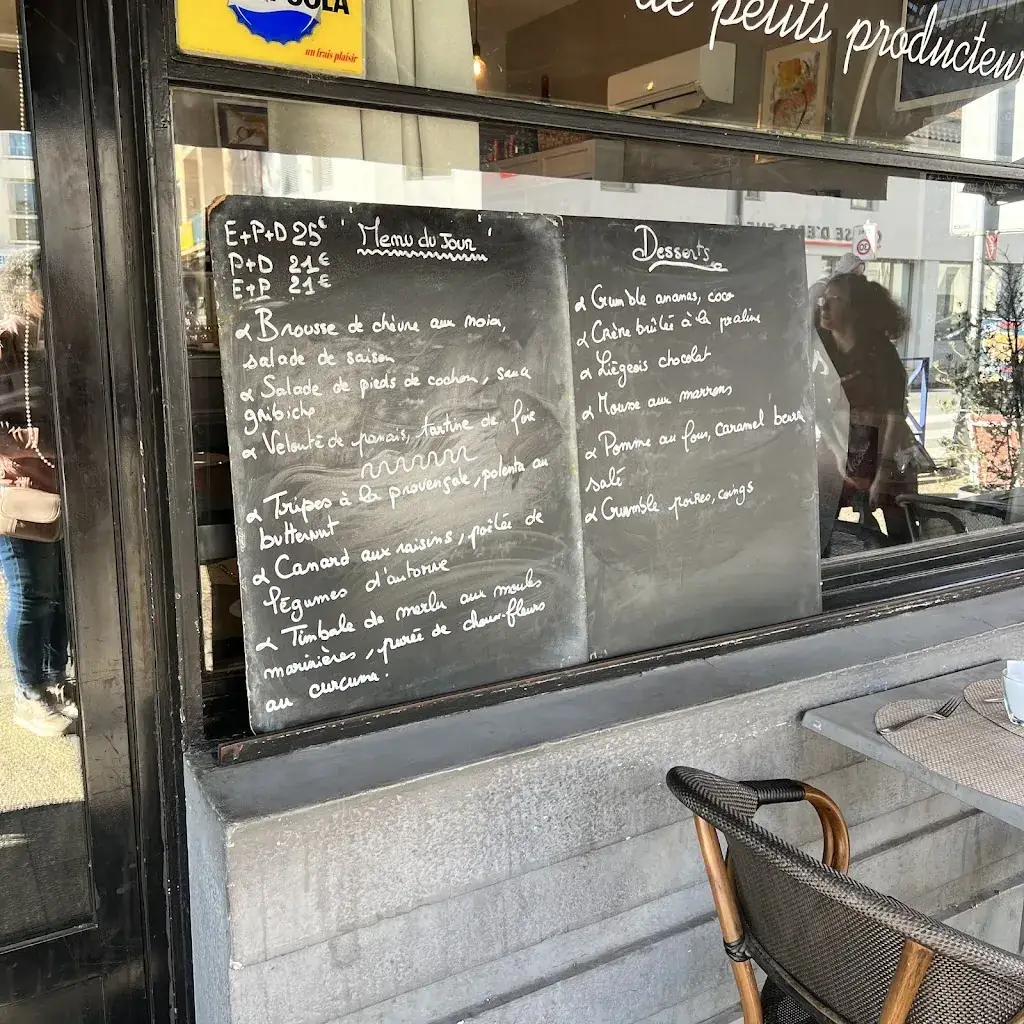 COLA
un frais plaisir
de petits producteur
E+P+D 25€
P+D 21€
E+P 21€
"Menu du Jour"
α Brousse de chèvre aux noix,
salade de saison
α Salade de pieds de cochon, sauce
gribiche
α Velouté de panais, tartine de foie
α Tripes à la provençale, polenta au
butternut
α Canard aux raisins, poêlée de
légumes d'automne
α Timbale de merlu aux moules
marinières, purée de choux-fleurs
au curcuma.
Desserts
α Crumble ananas, coco
α Crème brûlée à la praline
α Liégeois chocolat
α Mousse aux marrons
α Pomme au four, caramel beurre
salé
α Crumble poires, coings